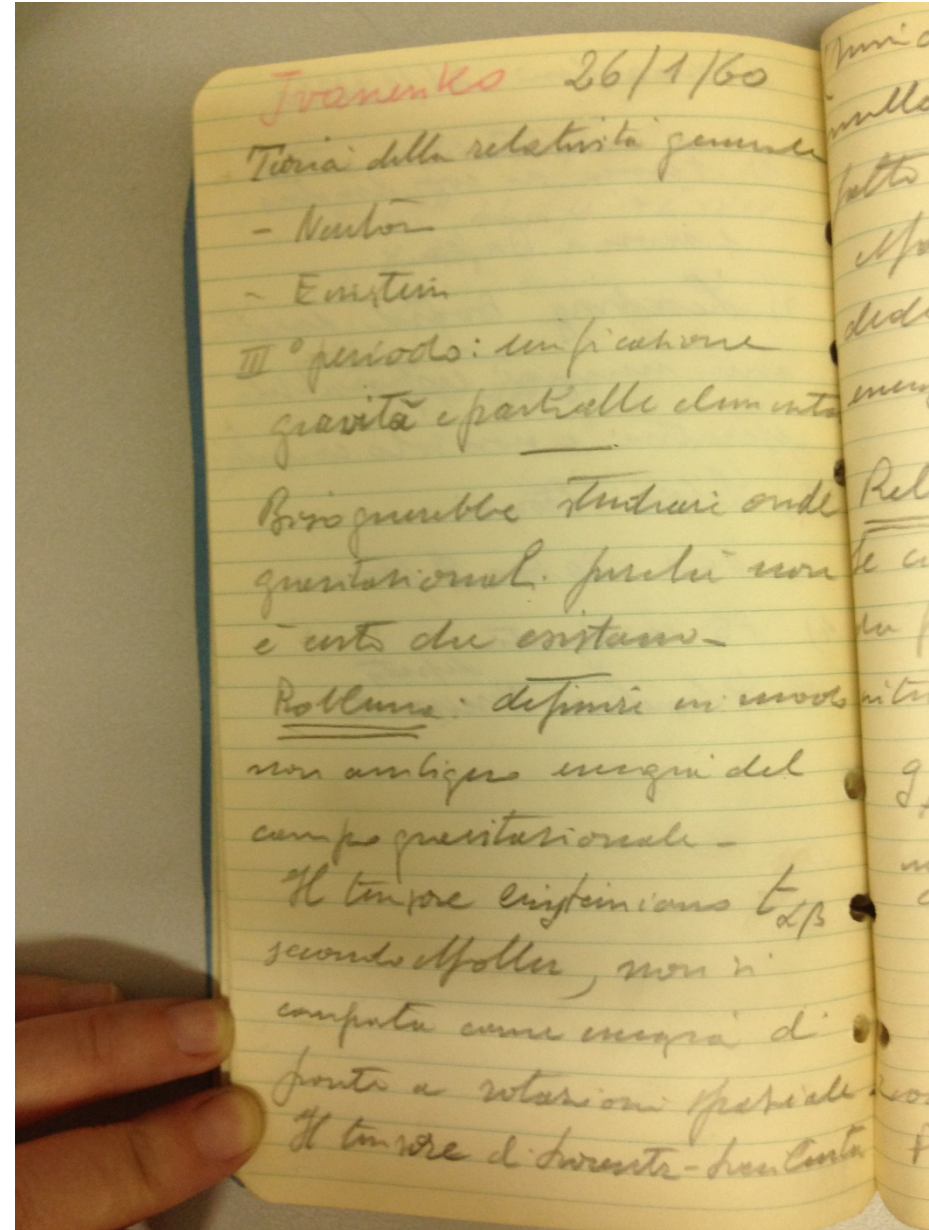 Ivanenko 26/1/60
Teoria della relatività generale
- Newton
- Einstein
III° periodo: unificazione
gravità e particelle elementa
Bisognerebbe studiare onde
gravitazionali perché non
è certo che esistano -
Problema: definire in modo
non ambiguo energia del
campo gravitazionale -
Il tensore einsteiniano t αβ
secondo Møller, non si
comporta come energia di
fronte a rotazioni spaziale
Il tensore di Lorentz-Levi Civita
nulla
fatto
Rel